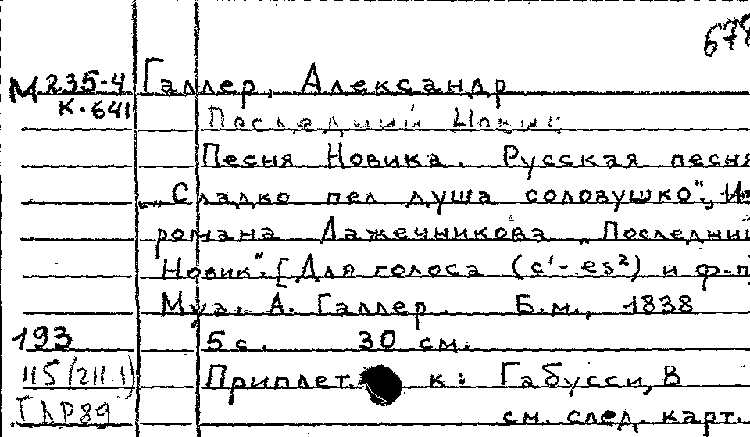 М 235-4 Галлер, Александр
К-641 Последний Новик
Песня Новика. Русская песня
„Сладко пел душа соловушко“. Из
романа Лажечникова „Последний
Новик“. [Для голоса (c¹- es²) и ф-п]
Муз. А. Галлер. Б.м., 1838
193 5 с. 30 см.
115 (211 1) Приплет. к: Габусси, В
см. след. карт.